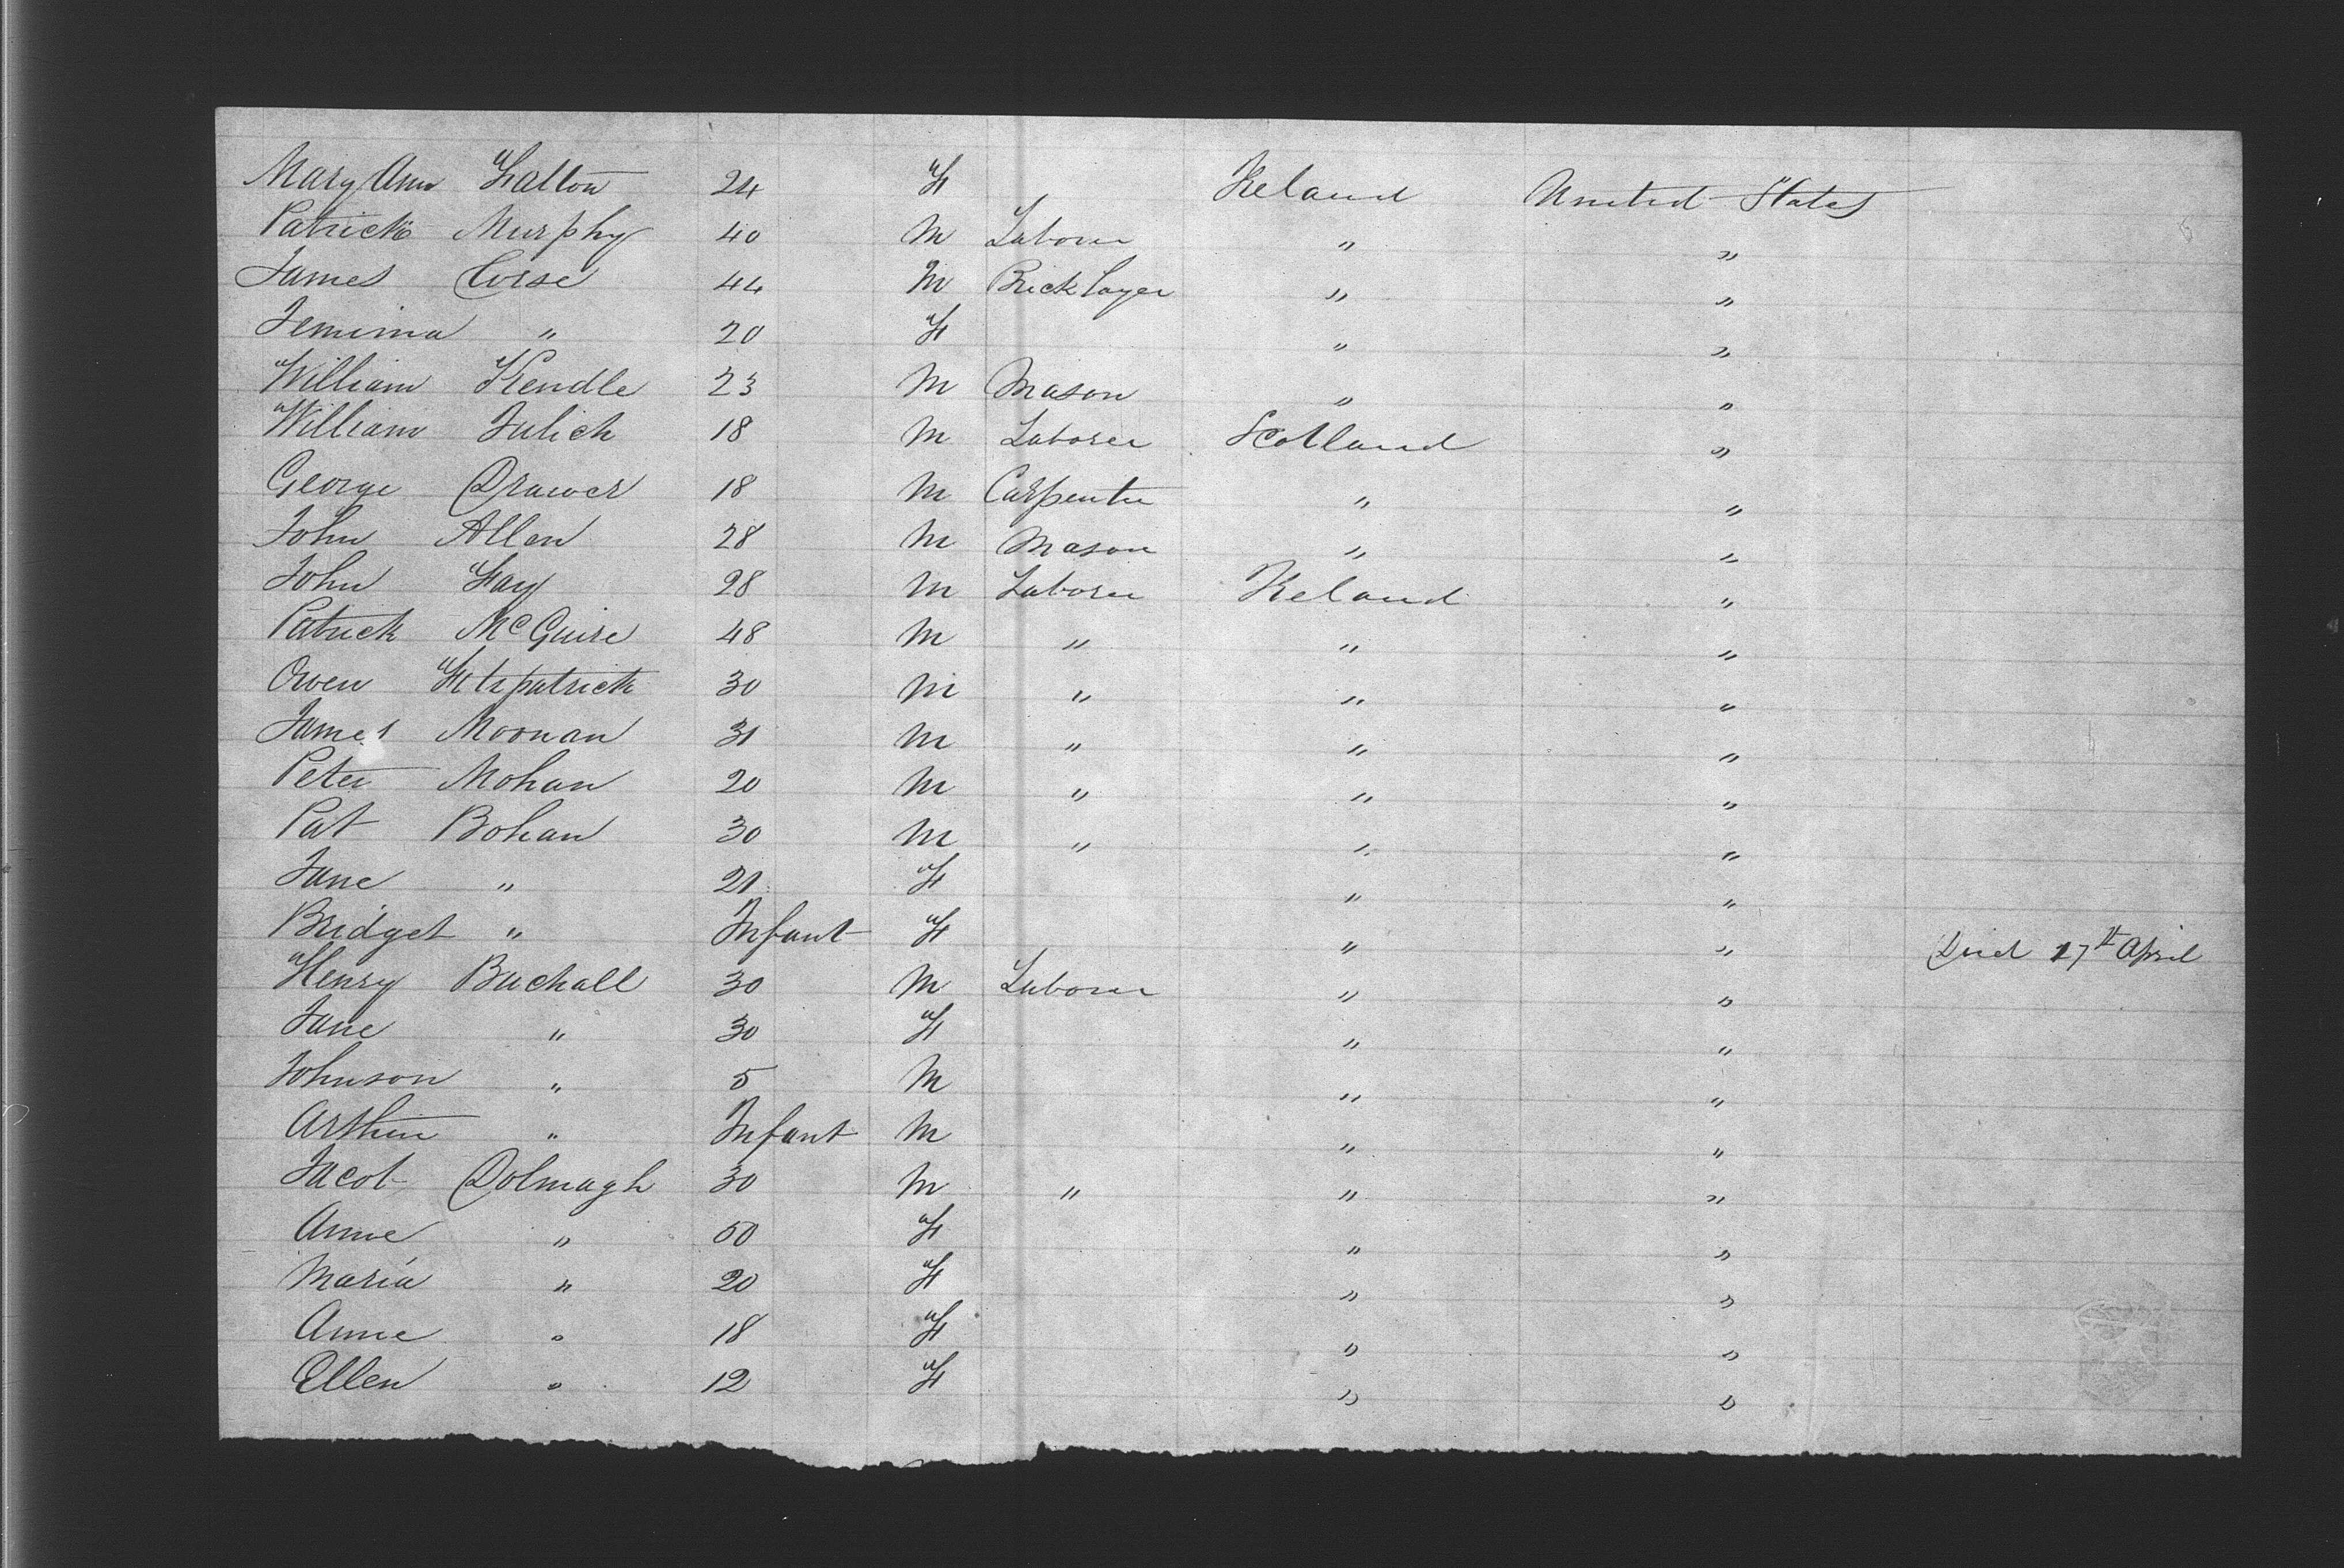 Mary Ann Fallon 24 F Ireland United States
Patrick Murphy 40 M Laborer " "
James Corse 44 M Bricklayer " "
Jemima " 20 F " "
William Kendle 23 M Mason " "
William Julich 18 M Laborer Scotland "
George Drawer 18 M Carpenter " "
John Allen 28 M Mason " "
John Fay 28 M Laborer Ireland "
Patrick McGuire 48 M " " "
Owen Fitzpatrick 30 M " " "
James Moonan 31 M " " "
Peter Mohan 20 M " " "
Pat Bohan 30 M " " "
Jane " 21 F " "
Bridget " Infant F " " Died 17th April
Henry Buchall 30 M Laborer " "
Jane " 30 F " "
Johnson " 5 M " "
Arthur " Infant M " "
Jacob Dolmagh 30 M " " "
Anne " 50 F " "
Maria " 20 F " "
Anne " 18 F " "
Ellen " 12 F " "